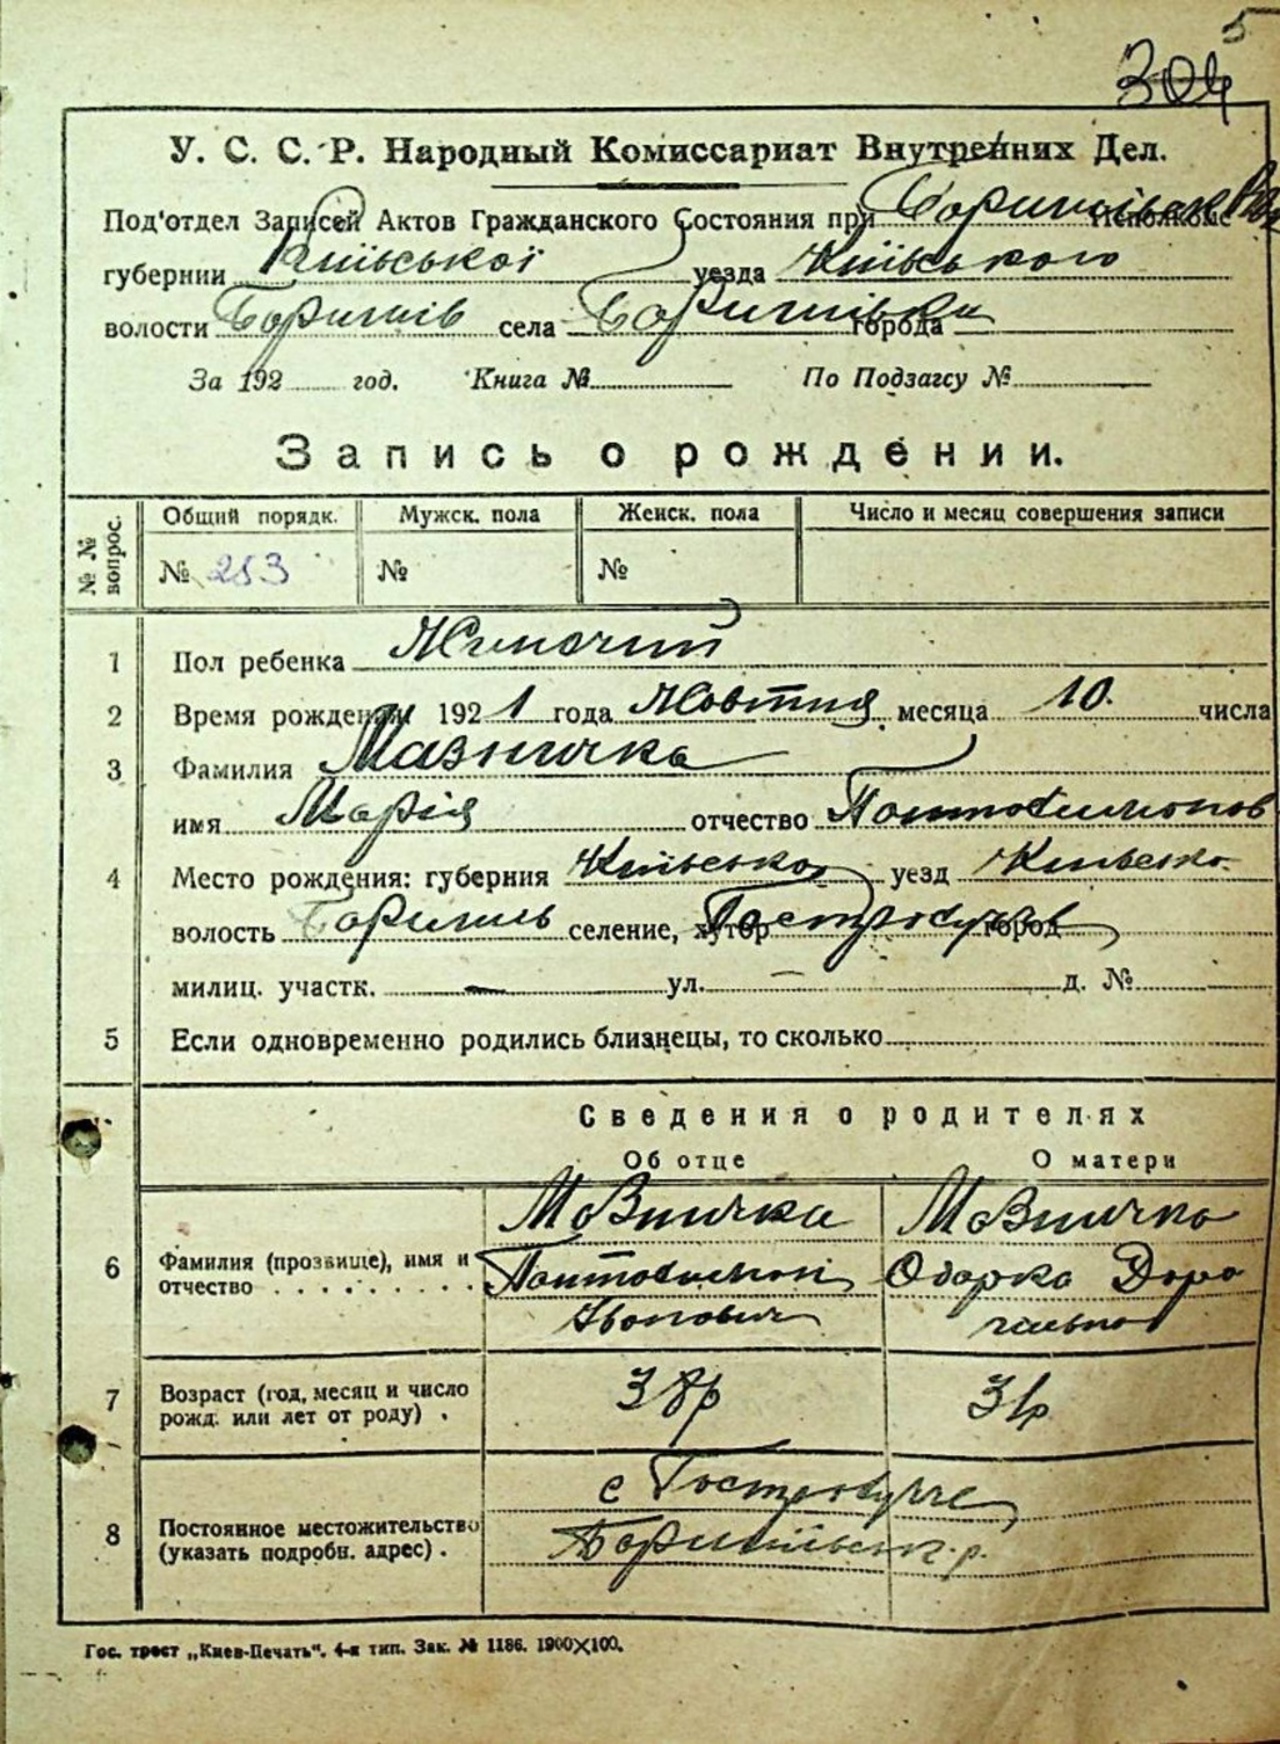 5
304
У. С. С. Р. Народный Комиссариат Внутренних Дел.
Под'отдел Записей Актов Гражданского Состояния при Исполкоме
губернии Київської уезда Київського
волости Бориспіль села города
За 192 год. Книга № По Подзагсу №
Запись о рождении.
№ № вопрос. Общий порядк. Мужск. пола Женск. пола Число и месяц совершения записи
№ 253 № №
1 Пол ребенка Жиночий
2 Время рождения 1921 года Жовтня месяца 10. числа
3 Фамилия Мазничка
имя Марія отчество Пантелимонов
4 Место рождения: губерния Київська уезд Київськ
волость Бориспіль селение, хутор город
милиц. участк. — ул. — д. №
5 Если одновременно родились близнецы, то сколько
Сведения о родителях
Об отце О матери
Мазничка Мазничка
6 Фамилия (прозвище), имя и отчество Пантелимон Одарка Доро
Іванович
7 Возраст (год, месяц и число рожд. или лет от роду) . 38р 31р
с
8 Постоянное местожительство (указать подробн. адрес) . Бориспільськ. р.
Гос. трест „Киев-Печать". 4-я тип. Зак. № 1186. 1900×100.